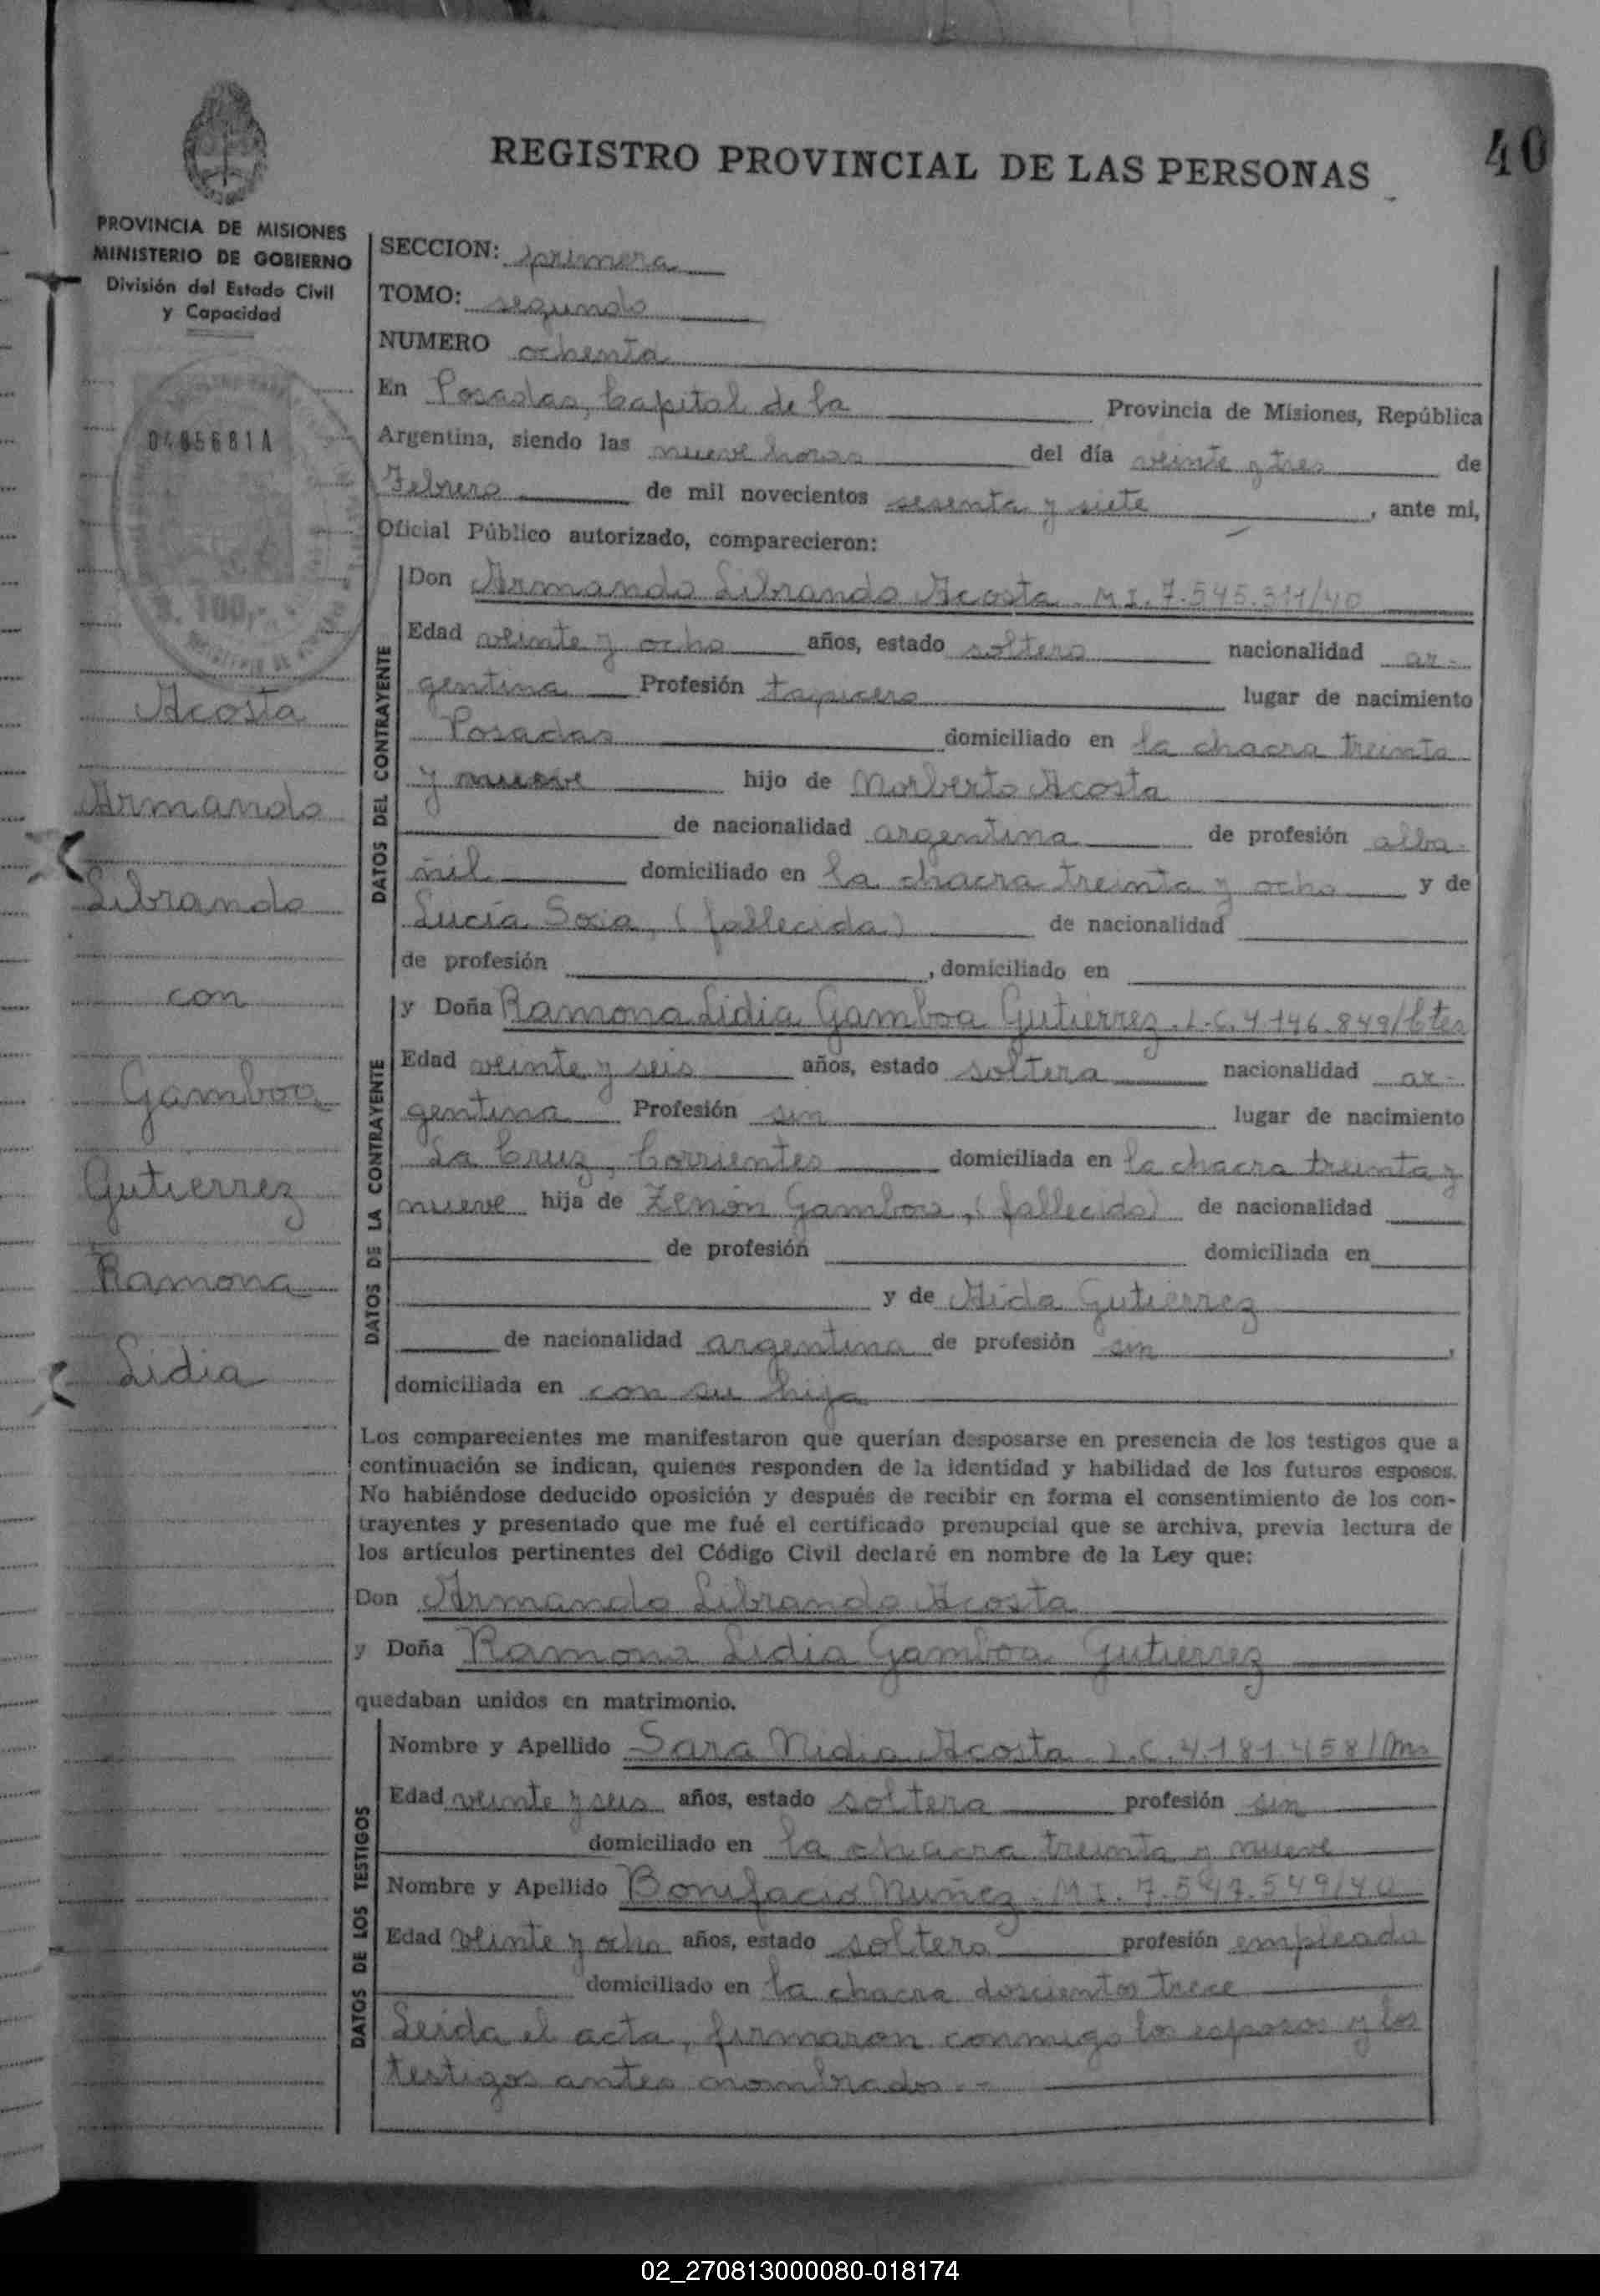 40
REGISTRO PROVINCIAL DE LAS PERSONAS
PROVINCIA DE MISIONES
MINISTERIO DE GOBIERNO
División del Estado Civil
y Capacidad
0485681A
$. 100,-
Acosta
Armando
Librando
con
Gamboa
Gutierrez
Ramona
Lidia
SECCION: primera
TOMO: segundo
NUMERO ochenta
En Posadas, Capital de la Provincia de Misiones, República
Argentina, siendo las nueve horas del día veinte y tres de
Febrero de mil novecientos sesenta y siete, ante mi,
Oficial Público autorizado, comparecieron:
DATOS DEL CONTRAYENTE
Don Armando Librando Acosta. M I. 7.545.311/40
Edad veinte y ocho años, estado soltero nacionalidad ar-
gentina Profesión tapicero lugar de nacimiento
Posadas domiciliado en la chacra treinta
y nueve hijo de Norberto Acosta
de nacionalidad argentina de profesión alba-
ñil domiciliado en la chacra treinta y ocho y de
Lucía Sosa, (fallecida) de nacionalidad
de profesión , domiciliado en
DATOS DE LA CONTRAYENTE
y Doña Ramona Lidia Gamboa Gutierrez. L.C. 4 146.849/Ctes
Edad veinte y seis años, estado soltera nacionalidad ar-
gentina Profesión sin lugar de nacimiento
La Cruz, Corrientes domiciliada en la chacra treinta y
nueve hija de Zenón Gamboa, (fallecido) de nacionalidad
de profesión domiciliada en
y de Aida Gutierrez
de nacionalidad argentina de profesión sin ,
domiciliada en con su hija
Los comparecientes me manifestaron que querían desposarse en presencia de los testigos que a
continuación se indican, quienes responden de la identidad y habilidad de los futuros esposos.
No habiéndose deducido oposición y después de recibir en forma el consentimiento de los con-
trayentes y presentado que me fué el certificado prenupcial que se archiva, previa lectura de
los artículos pertinentes del Código Civil declaré en nombre de la Ley que:
Don Armando Librando Acosta
y Doña Ramona Lidia Gamboa Gutierrez
quedaban unidos en matrimonio.
DATOS DE LOS TESTIGOS
Nombre y Apellido Sara Nidia Acosta. L.C. 4.181.458/Ms
Edad veinte y seis años, estado soltera profesión sin
domiciliado en la chacra treinta y nueve
Nombre y Apellido Bonifacio Nuñez. M I. 7.547.549/40
Edad veinte y ocho años, estado soltero profesión empleado
domiciliado en la chacra doscientos trece
Leida el acta, firmaron conmigo los esposos y los
testigos antes nombrados.-
02_270813000080-018174